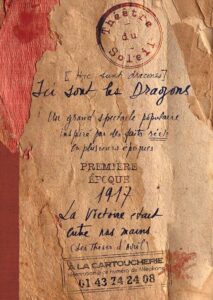 Théâtre
du
Soleil
[Hic sunt dracones]
Ici sont les Dragons
Un grand spectacle populaire
inspiré par des faits réels
en plusieurs époques
PREMIÈRE
ÉPOQUE
1917
La Victoire était
entre nos mains
À LA CARTOUCHERIE
numéro de téléphone
01 43 74 24 08